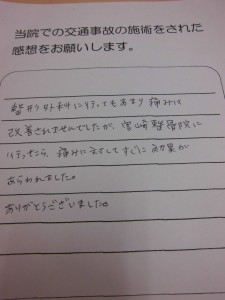 当院での交通事故の施術をされた
感想をお願いします。
整形外科に行ってもあまり痛みは
改善されませんでしたが、宮崎整骨院に
行ってから、痛みに対してすぐに効果が
あらわれました。
ありがとうございました。